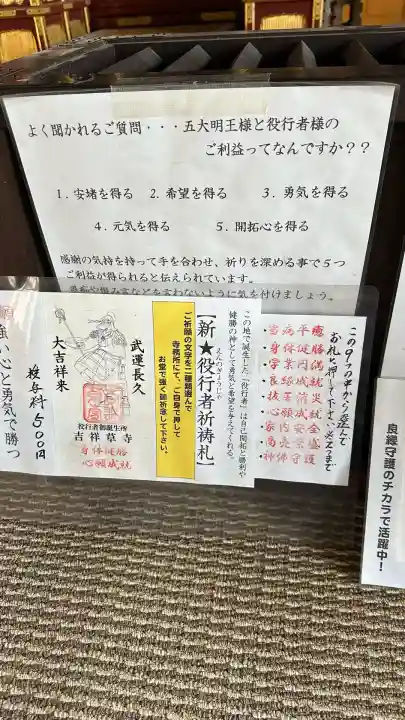 よく聞かれるご質問・・・五大明王様と役行者様の
ご利益ってなんですか??
1.安堵を得る 2.希望を得る 3.勇気を得る
4.元気を得る 5.開拓心を得る
感謝の気持を持って手を合わせ、祈りを深める事で5つ
ご利益が得られると伝えられています。
言わないように気を付けましょう。
この9つの中から選んで
お札に押して下さい
当病平癒
身体健勝
心願成就
家内安全
商売繁盛
神佛守護
この地で誕生した「役行者」は自己開拓と勝利や
健勝の神として勇気と希望を与えてくれる。
えんのぎょうじゃ
【新★役行者祈祷札】
ご祈願の文字を二種類選んで
寺務所にて、ご自身で押して
お堂で強く御祈念して下さい。
武運長久
大吉祥来
役行者御誕生所
吉祥草寺
身体健勝
心願成就
授与料500円
強い心と勇気で勝つ
良縁守護のチカラで活躍中!